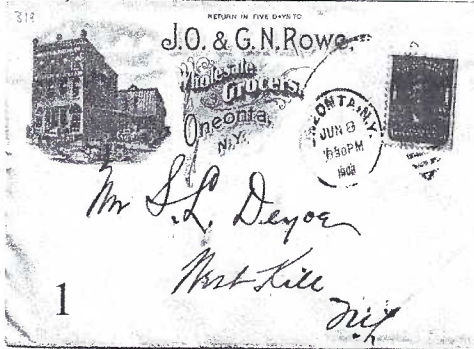 319
RETURN IN FIVE DAYS TO
J.O. & G.N. Rowe,
Wholesale
Grocers,
Oneonta,
N.Y.
ONEONTA, N.Y.
JUN 8
30PM
190
Mr S.L. Deyoe
West Kill
N.Y.
1